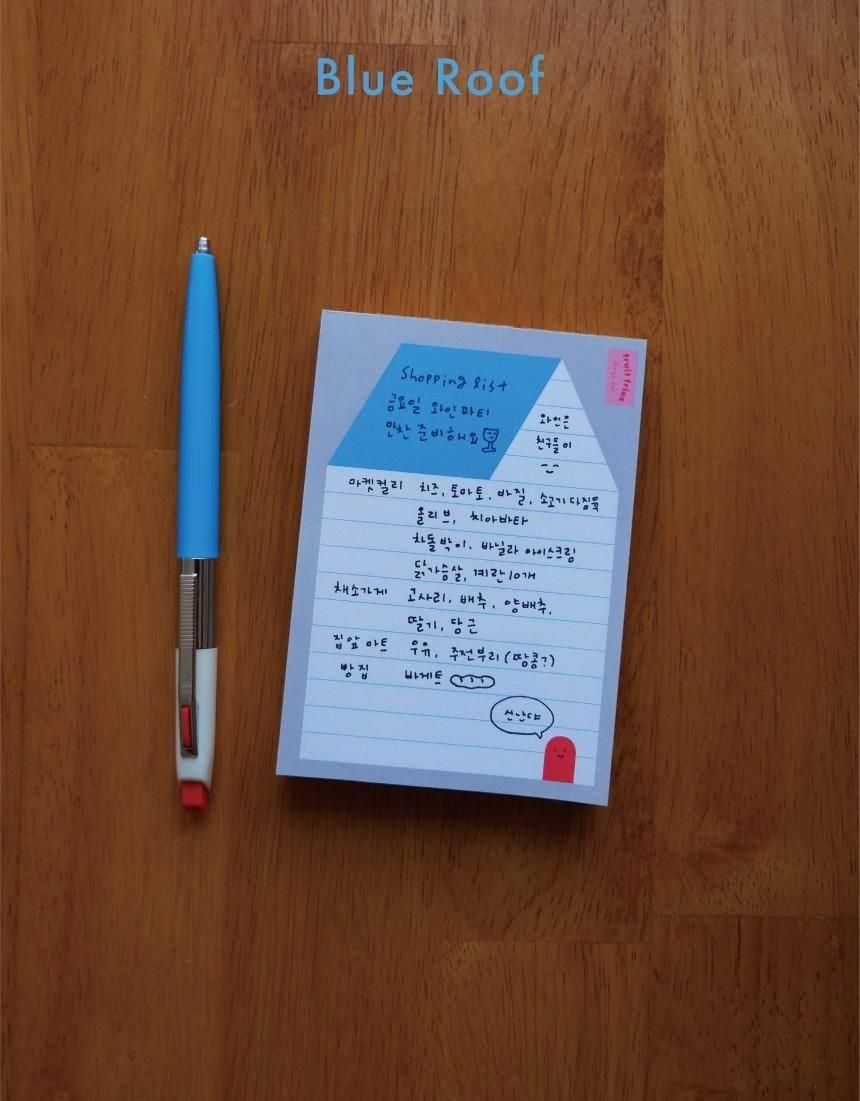 Blue Roof
fruit fries
Shopping list
금요일 와인파티
만찬 준비해요
와인은
친구들이
마켓컬리 치즈, 토마토, 바질, 소고기다짐육
올리브, 치아바타
차돌박이, 바닐라 아이스크림
닭가슴살, 계란 10개
채소가게 고사리, 배추, 양배추,
딸기, 당근
집앞 마트 우유, 주전부리(땅콩?)
빵집 바게트
신난다